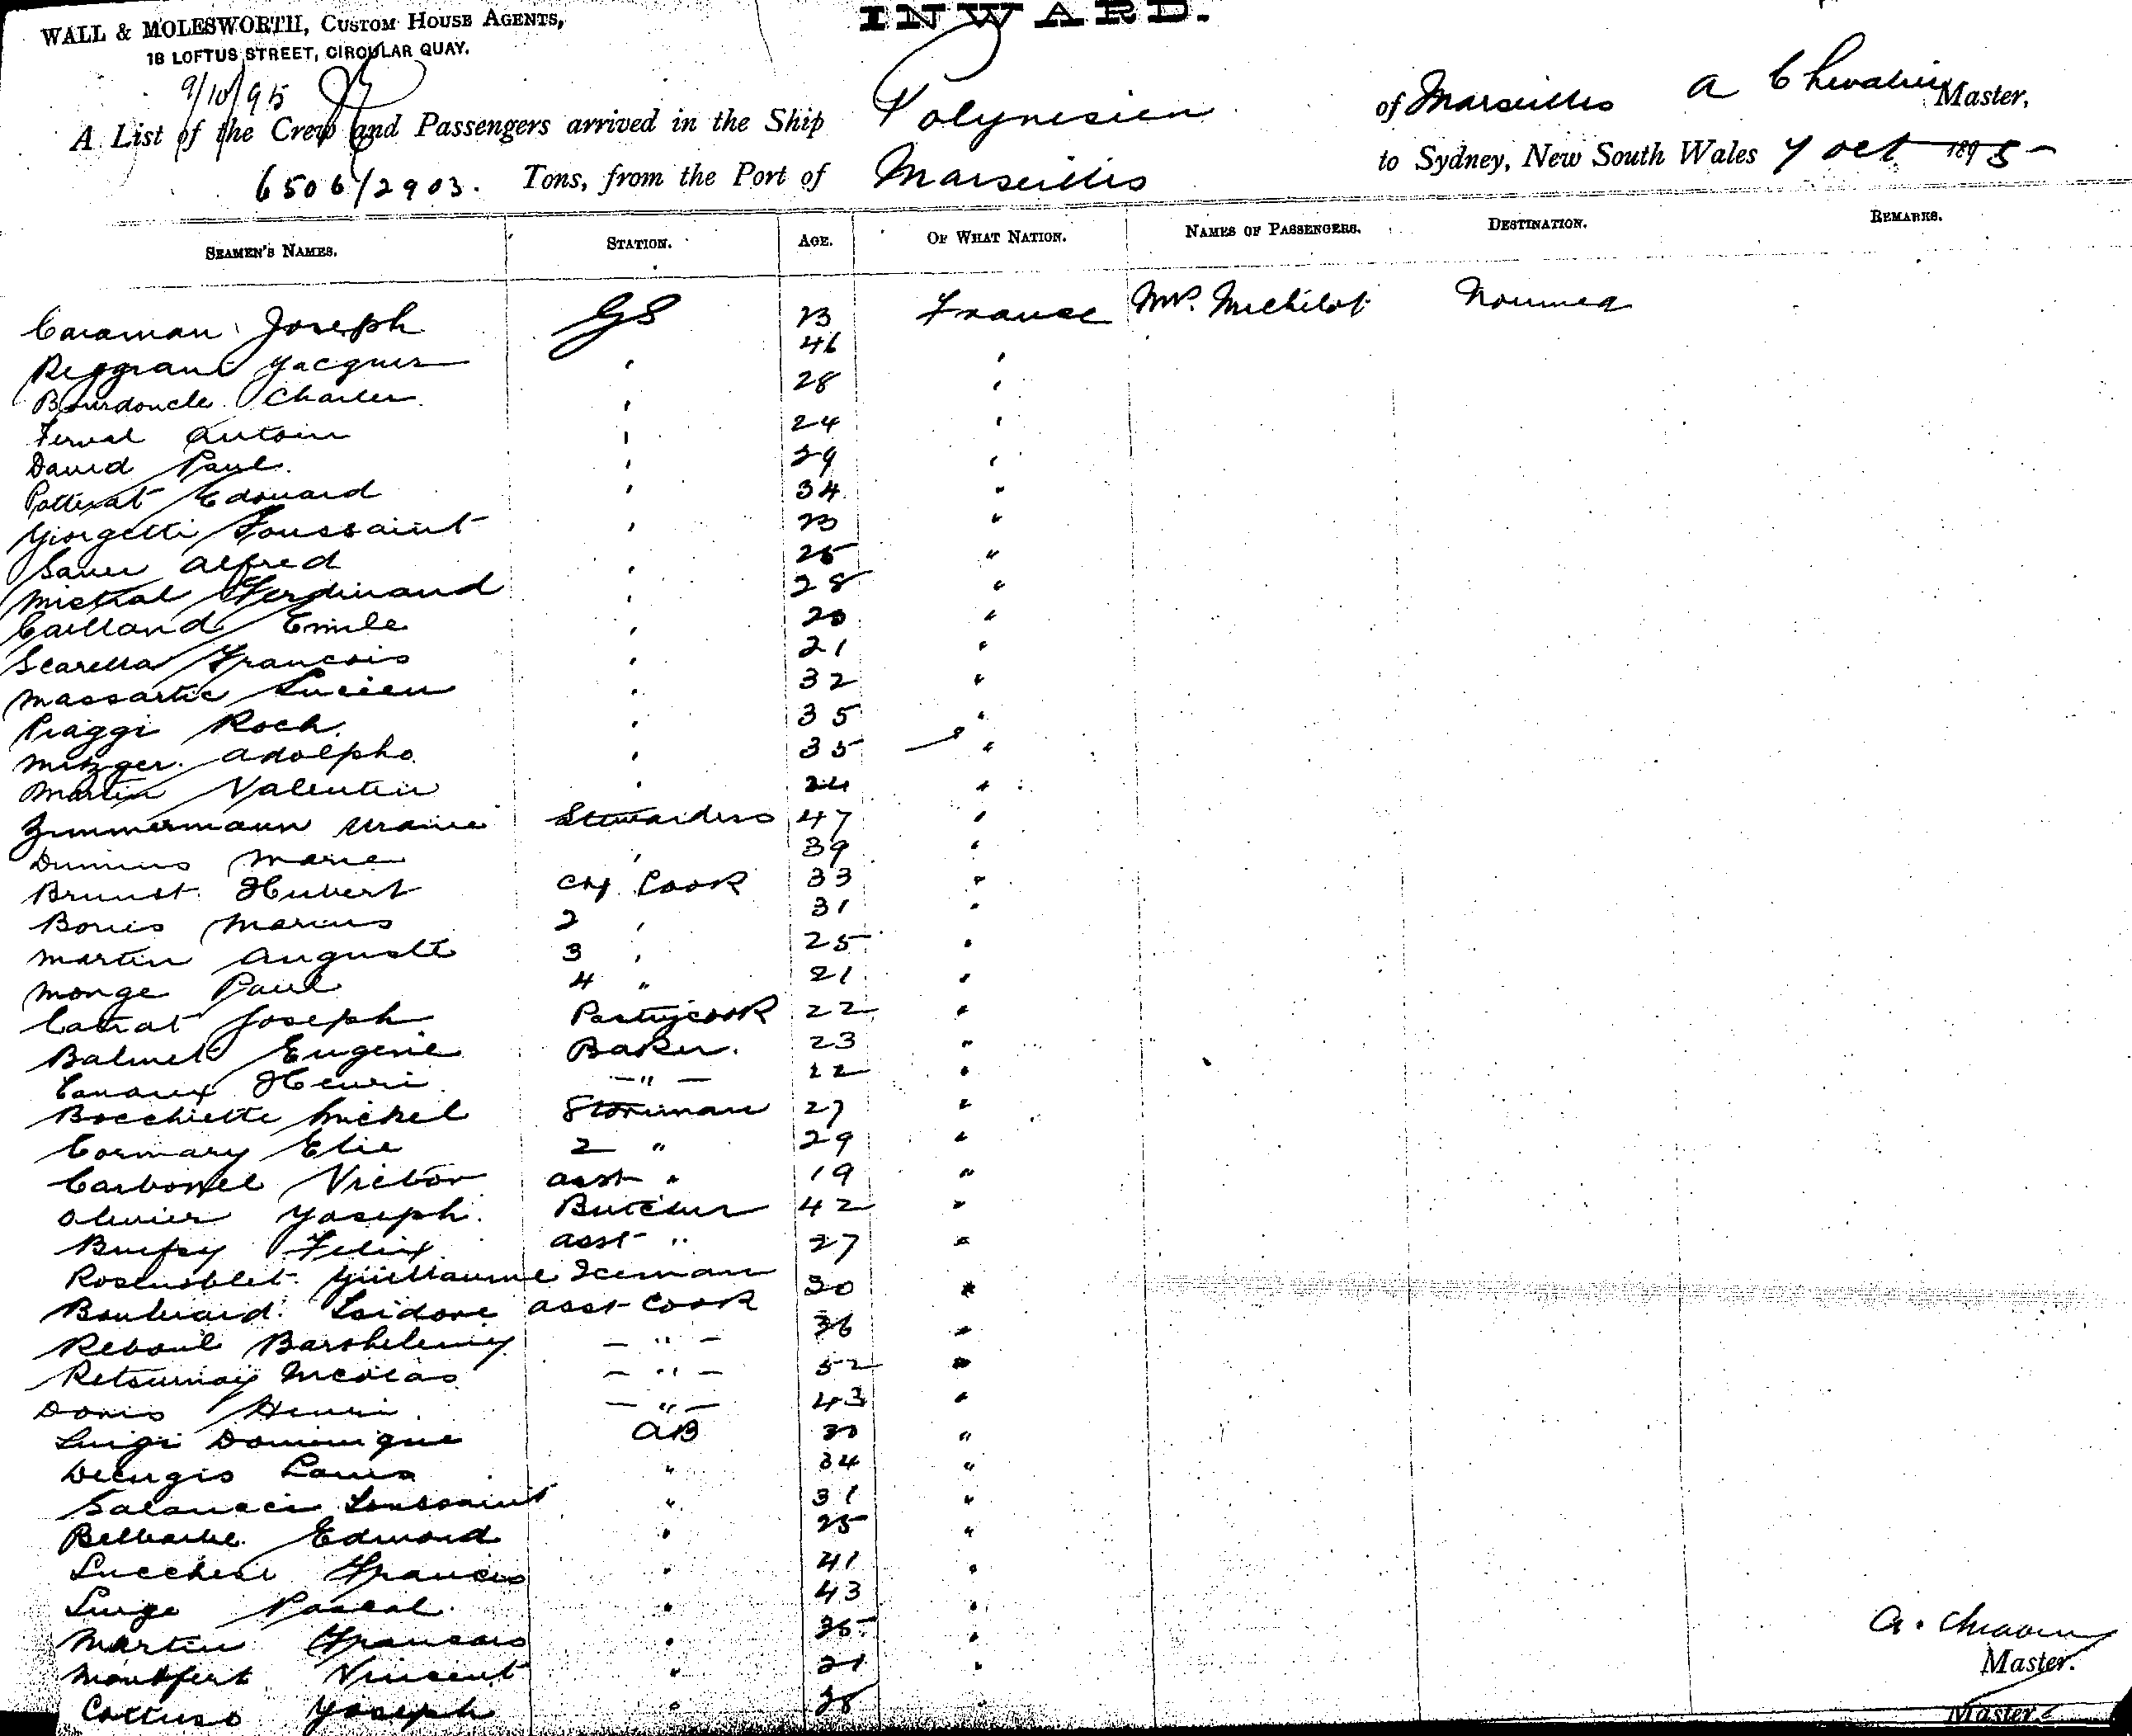 INWARD.
WALL & MOLESWORTH, CUSTOM HOUSE AGENTS,
18 LOFTUS STREET, CIRCULAR QUAY.
9/10/95
A List of the Crew and Passengers arrived in the Ship Polynesien of Marseilles A Chevalier Master,
6506/2903. Tons, from the Port of Marseilles to Sydney, New South Wales 7 Oct 1895
SEAMEN'S NAMES. STATION. AGE. OF WHAT NATION. NAMES OF PASSENGERS. DESTINATION. REMARKS.
Caraman Joseph GS 23 France Mr. Michelot Noumea
Jacques ' 46 '
Bourdoncle Charles ' 28 '
Ferval Antoin ' 24 '
David Paul ' 29 '
Potterat Edouard ' 34 "
Giorgetti Toussaint ' 23 "
Sauer Alfred ' 25 "
Mistral Ferdinand ' 28 "
Cailland Emile ' 20 "
Scarella Francois ' 21 "
Massartic Lucien ' 32 "
Piaggi Roch ' 35 "
Metzger Adolphe ' 35 "
Martin Valentin ' 24 "
Zimmermann Stewardess 47 '
Marie ' 39 "
Brunet Hubert Chf Cook 33 "
Bories Marius 2 ' 31 "
Martin Auguste 3 ' 25 "
Monge Paul 4 " 21 "
Catrat Joseph Pastrycook 22 "
Balmet Eugenie Baker. 23 "
Henri — " — 22 "
Bocchiette Michel Storeman 27 "
Cormary Elie 2 " 29 "
Carbonnel Victor asst " 19 "
Olivier Joseph Butcher 42 "
Felix asst " 27 "
Rosenoblet Guillaume Iceman 30 "
Boulevard Isidore asst Cook
Reboul Barthelemy — " — 36 "
Retournay Nicolas — " — 52 "
Donis Henri — " — 43 "
Luigi Dominique AB 30 "
Decugis Louis " 34 "
Toussaint " 31 "
Edmond " 25 "
Lucchesi Francois " 41 "
Luigi Pascal " 43 "
Martin Francois " 35 "
Montfert Vincent " 21 "
Cottuso Joseph " 28 "
A. Chevalier
Master.
Master.